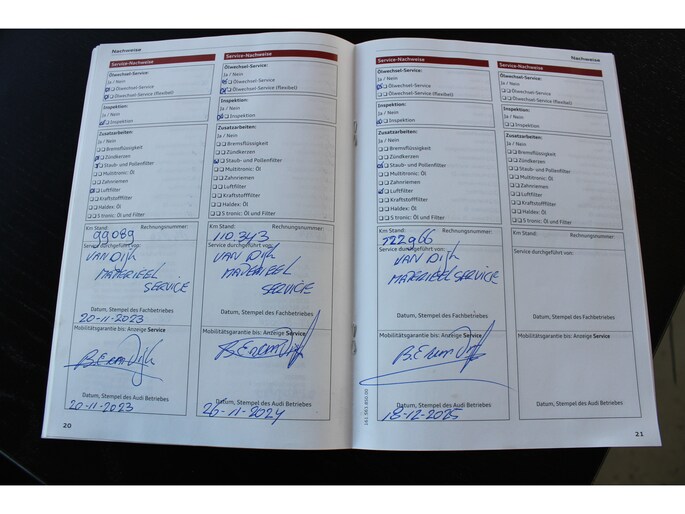 Nachweise
Service-Nachweise
Ölwechsel-Service:
Ja / Nein
Ölwechsel-Service
Ölwechsel-Service (flexibel)
Inspektion:
Ja / Nein
Inspektion
Zusatzarbeiten:
Ja / Nein
Bremsflüssigkeit
Zündkerzen
Staub- und Pollenfilter
Multitronic: Öl
Zahnriemen
Luftfilter
Kraftstofffilter
Haldex: Öl
S tronic: Öl und Filter
Km Stand: Rechnungsnummer:
99089
Service durchgeführt von:
VAN DIJK
MATERIEEL
SERVICE
Datum, Stempel des Fachbetriebes
20-11-2023
Mobilitätsgarantie bis: Anzeige Service
Datum, Stempel des Audi Betriebes
20-11-2023
20
Service-Nachweise
Ölwechsel-Service:
Ja / Nein
Ölwechsel-Service
Ölwechsel-Service (flexibel)
Inspektion:
Ja / Nein
Inspektion
Zusatzarbeiten:
Ja / Nein
Bremsflüssigkeit
Zündkerzen
Staub- und Pollenfilter
Multitronic: Öl
Zahnriemen
Luftfilter
Kraftstofffilter
Haldex: Öl
S tronic: Öl und Filter
Km Stand: Rechnungsnummer:
110.343
Service durchgeführt von:
VAN DIJK
MATERIEEL
SERVICE
Datum, Stempel des Fachbetriebes
Mobilitätsgarantie bis: Anzeige Service
Datum, Stempel des Audi Betriebes
26-11-2024
Nachweise
Service-Nachweise
Ölwechsel-Service:
Ja / Nein
Ölwechsel-Service
Ölwechsel-Service (flexibel)
Inspektion:
Ja / Nein
Inspektion
Zusatzarbeiten:
Ja / Nein
Bremsflüssigkeit
Zündkerzen
Staub- und Pollenfilter
Multitronic: Öl
Zahnriemen
Luftfilter
Kraftstofffilter
Haldex: Öl
S tronic: Öl und Filter
Km Stand: Rechnungsnummer:
122966
Service durchgeführt von:
VAN DIJK
MATERIEELSERVICE
Datum, Stempel des Fachbetriebes
Mobilitätsgarantie bis: Anzeige Service
Datum, Stempel des Audi Betriebes
18-12-2025
Service-Nachweise
Ölwechsel-Service:
Ja / Nein
Ölwechsel-Service
Ölwechsel-Service (flexibel)
Inspektion:
Ja / Nein
Inspektion
Zusatzarbeiten:
Ja / Nein
Bremsflüssigkeit
Zündkerzen
Staub- und Pollenfilter
Multitronic: Öl
Zahnriemen
Luftfilter
Kraftstofffilter
Haldex: Öl
S tronic: Öl und Filter
Km Stand: Rechnungsnummer:
Service durchgeführt von:
Datum, Stempel des Fachbetriebes
Mobilitätsgarantie bis: Anzeige Service
Datum, Stempel des Audi Betriebes
21